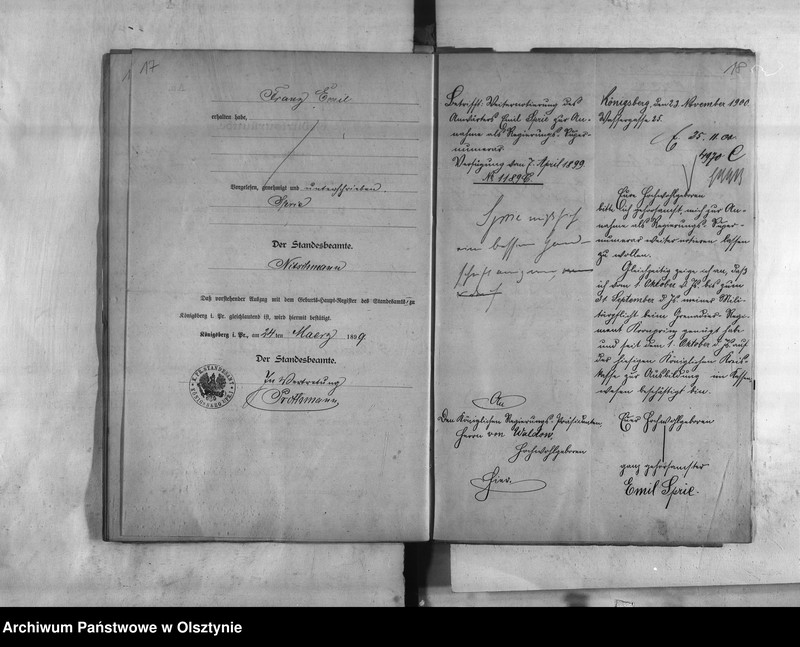 17
Franz Emil
erhalten habe.
Vorgelesen, genehmigt und unterschrieben
Sprie
Der Standesbeamte.
Nitschmann
Daß vorstehender Auszug mit dem Geburts-Haupt-Register des Standesamts zu
Königsberg i. Pr. gleichlautend ist, wird hiermit bestätigt.
Königsberg i. Pr., am 24 ten Maerz 1899.
Der Standesbeamte.
In Vertretung
18
Betrifft Weiternotierung des
Anwärters Emil Sprie zur An-
nahme als Regierungs-Super-
numerar
Verfügung vom 7. April 1899
Königsberg, den 23. November 1900
25. 11. 00
Euer Hochwohlgeboren
bitte ich gehorsamst, mich zur An-
nahme als Regierungs-Super-
numerar weiter notieren lassen
zu wollen.
Gleichzeitig zeige ich an, daß
ich vom 1. Oktober v. Js. bis zum
September d. Js. meiner Mili-
tärpflicht beim Grenadier-Regi-
ment Kronprinz genügt habe
und seit dem 1. Oktober d. Js. auf
der hiesigen Königlichen Kreis-
kasse zur Ausbildung im Kassen-
wesen beschäftigt bin.
An
Den Königlichen Regierungs-Präsidenten,
Herrn von Waldow,
Hochwohlgeboren
Hier.
Euer Hochwohlgeboren
ganz gehorsamster
Emil Sprie.
Archiwum Państwowe w Olsztynie